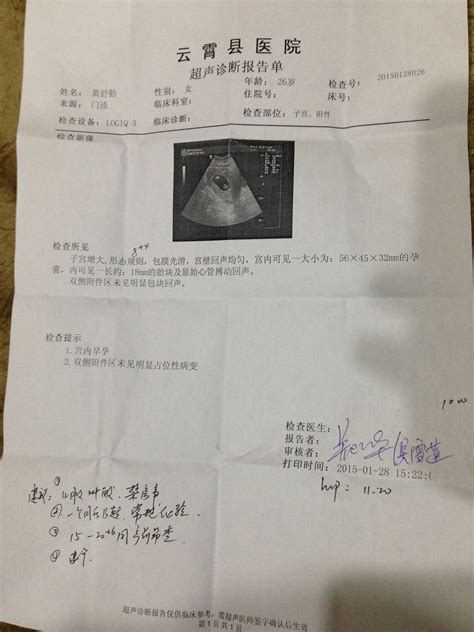 云霄县医院
超声诊断报告单
姓名: 黄舒勤 性别: 女 年龄: 26岁 检查号: 20150128026
来源: 门诊 临床科室: 住院号: 床号:
检查设备: LOGIQ 3 临床诊断: 检查部位: 子宫、附件
检查影像
检查所见
8+4
子宫增大,形态规则,包膜光滑,宫壁回声均匀,宫内可见一大小为:56×45×32mm的孕
囊,内可见一长约:18mm的胎块及原始心管搏动回声。
双侧附件区未见明显包块回声。
检查提示
1.宫内早孕
2.双侧附件区未见明显占位性病变
检查医生:
报告者:
审核者:
打印时间: 2015-01-28 15:22:
lmp: 11.20
①
②
③
④
超声诊断报告仅供临床参考,需超声医师签字确认后生效
第1页共1页